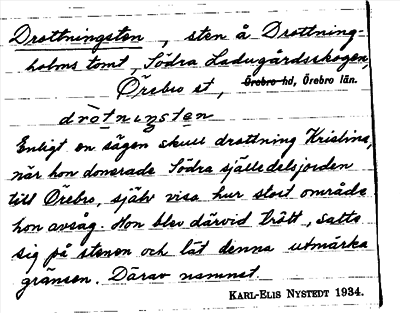 Drottningsten, sten å Drottning-
holms tomt, Södra Ladugårdsskogen,
Örebro st, Örebro hd, Örebro län.
dròtniŋsten
Enligt en sägen skulle drottning Kristina,
när hon donerade Södra själledelsjorden
till Örebro, själv visa hur stort område
hon avsåg. Hon blev därvid trött, satte
sig på stenen och lät denna utmärka
gränsen. Därav namnet.
KARL-ELIS NYSTEDT 1934.